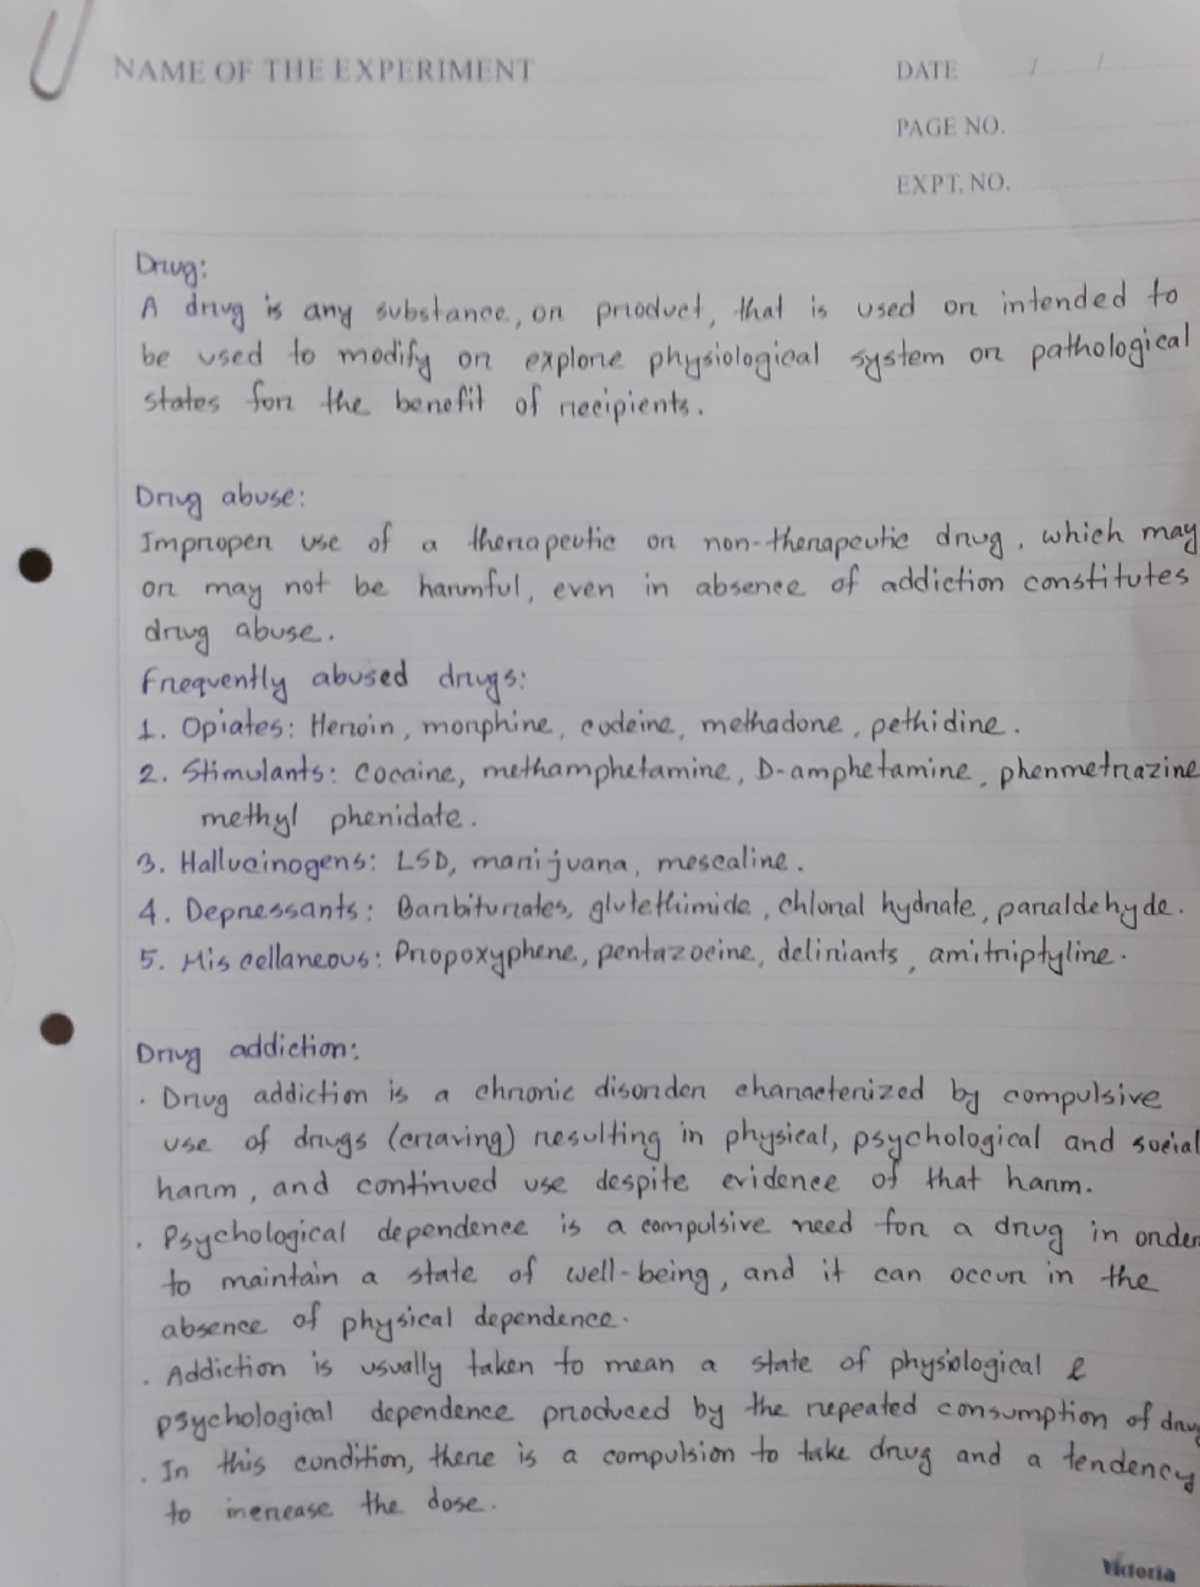 NAME OF THE EXPERIMENT
DATE / /
PAGE NO.
EXPT. NO.
Drug:
A drug is any substance, or product, that is used or intended to
be used to modify or explore physiological system or pathological
states for the benefit of recipients.
Drug abuse:
Improper use of a therapeutic or non-therapeutic drug, which may
or may not be harmful, even in absence of addiction constitutes
drug abuse.
Frequently abused drugs:
1. Opiates: Heroin, morphine, codeine, methadone, pethidine.
2. Stimulants: Cocaine, methamphetamine, D-amphetamine, phenmetrazine
methyl phenidate.
3. Hallucinogens: LSD, marijuana, mescaline.
4. Depressants: Barbiturates, glutethimide, chloral hydrate, paraldehyde.
5. Miscellaneous: Propoxyphene, pentazocine, deliriants, amitriptyline.
Drug addiction:
· Drug addiction is a chronic disorder characterized by compulsive
use of drugs (craving) resulting in physical, psychological and social
harm, and continued use despite evidence of that harm.
· Psychological dependence is a compulsive need for a drug in order
to maintain a state of well-being, and it can occur in the
absence of physical dependence.
· Addiction is usually taken to mean a state of physiological &
psychological dependence produced by the repeated consumption of drug
· In this condition, there is a compulsion to take drug and a tendency
to increase the dose.
Victoria